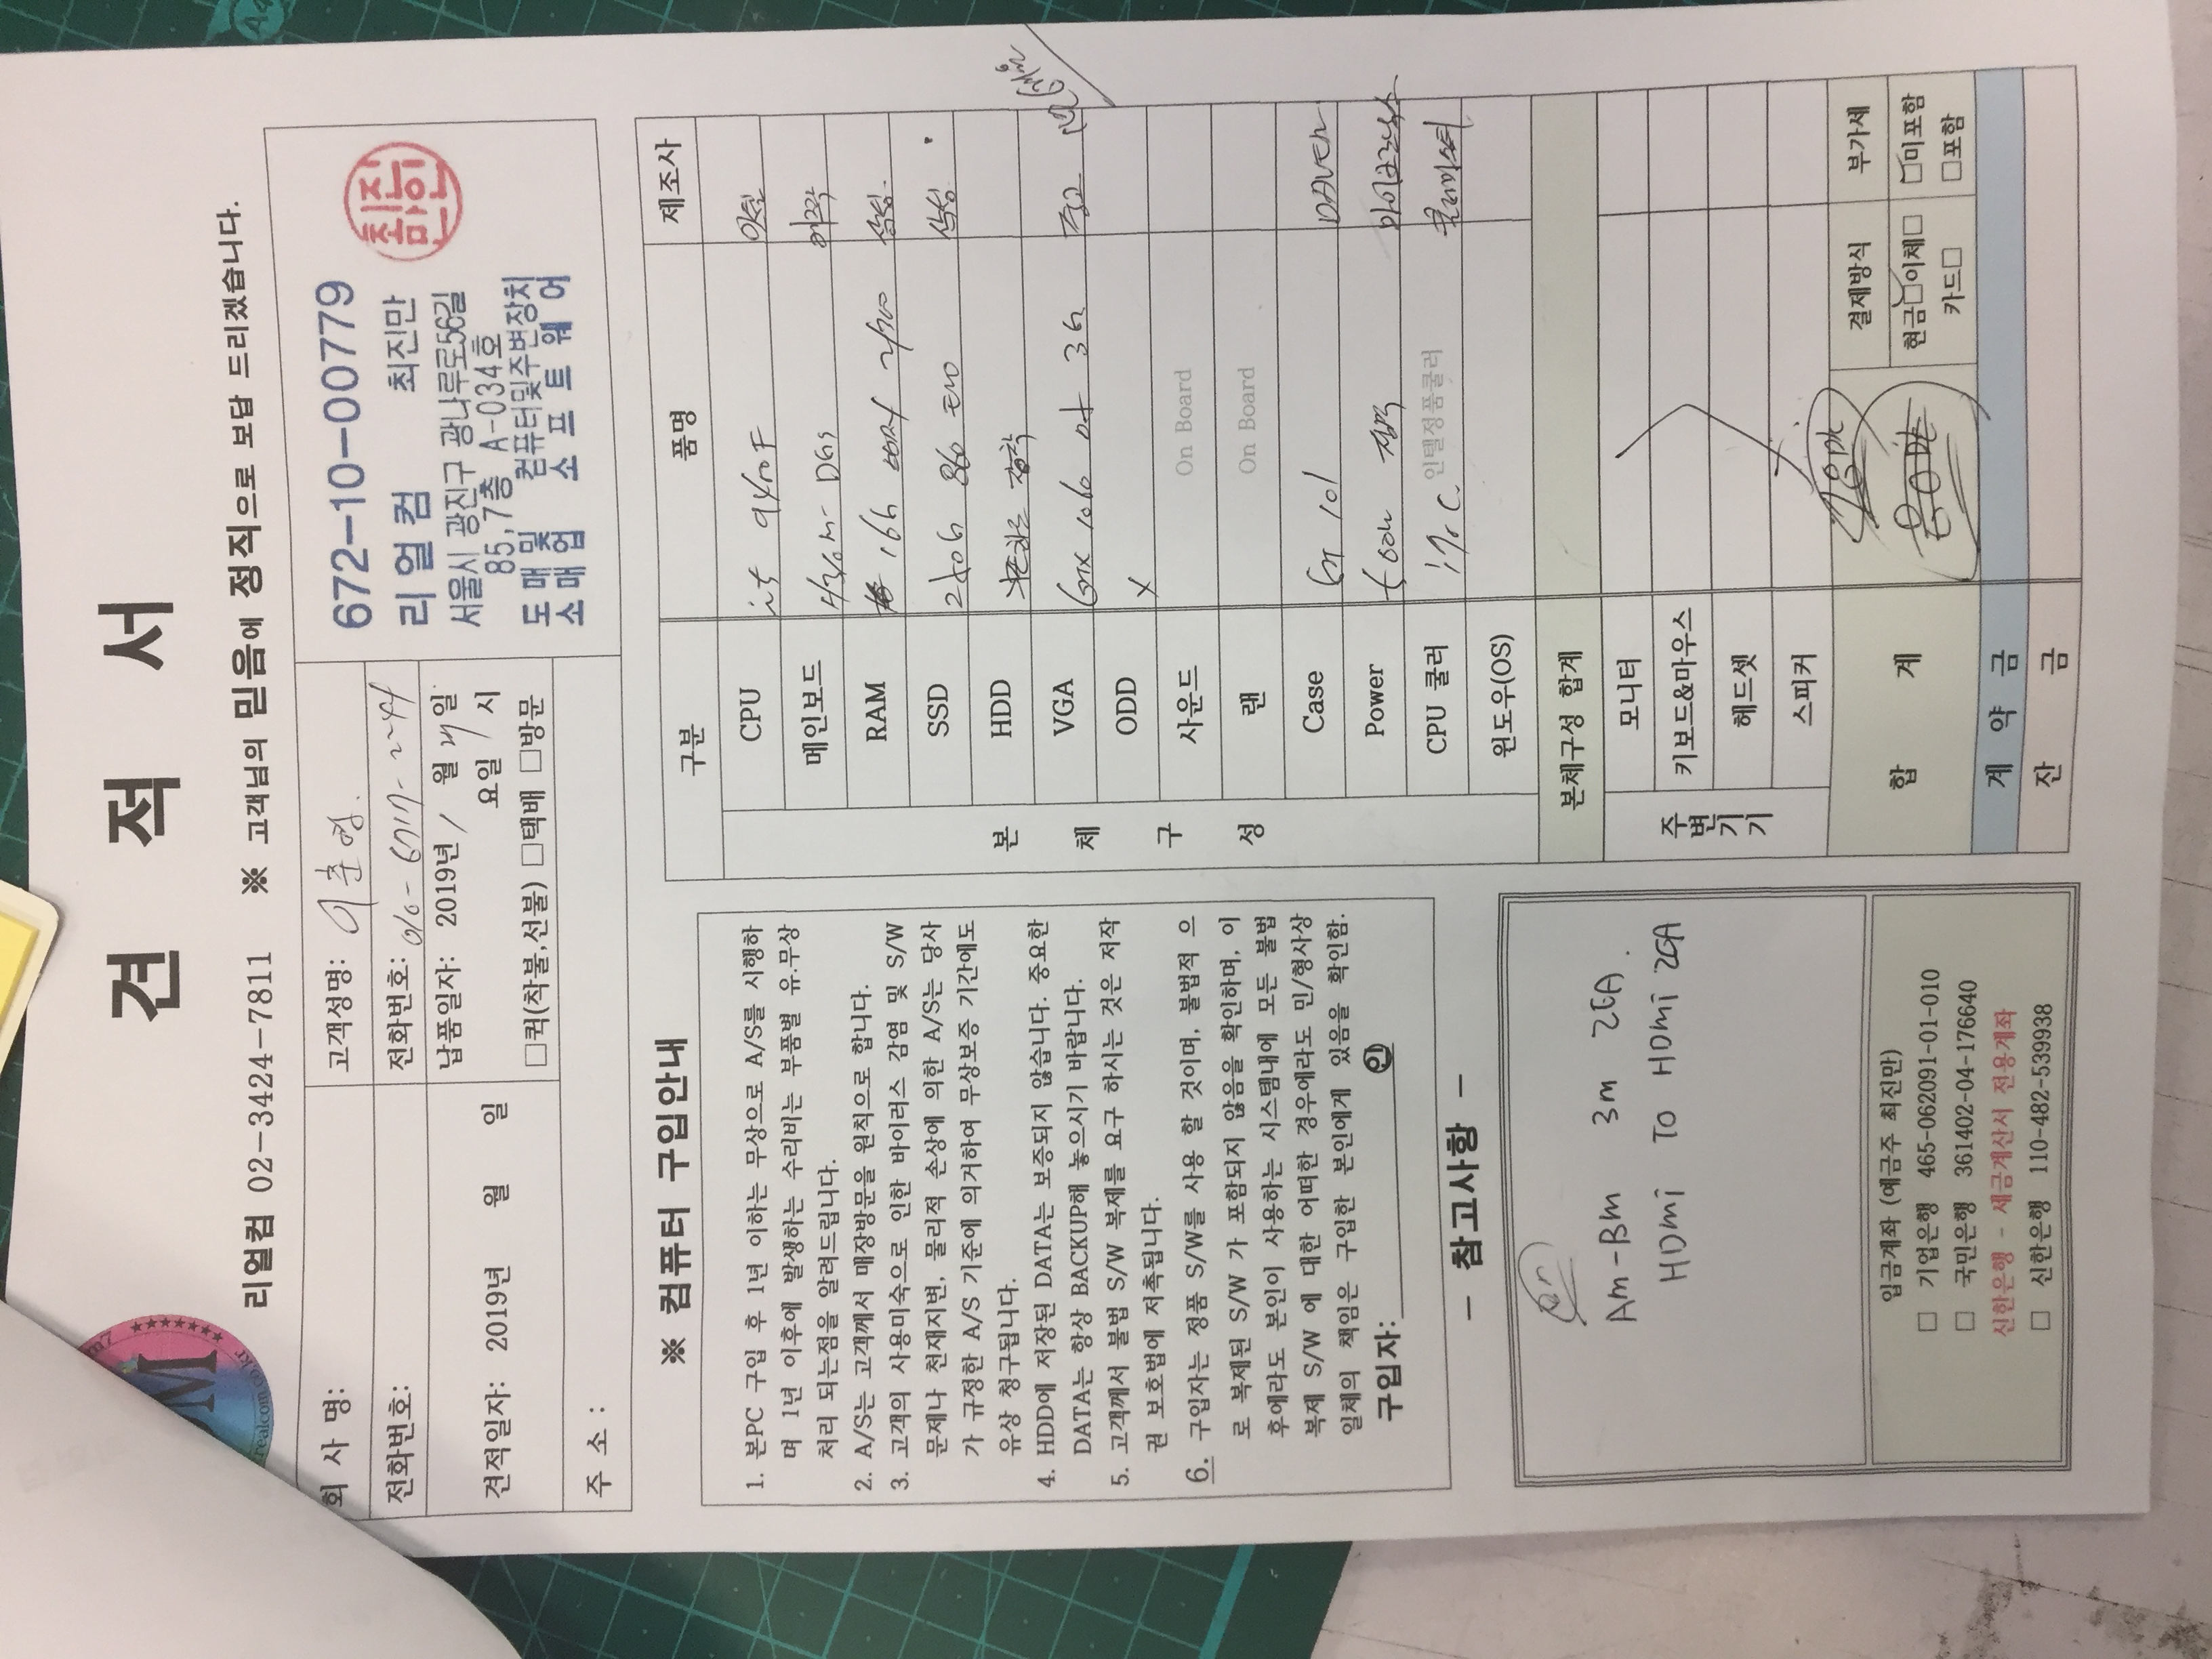 견 적 서
리얼컴 02-3424-7811 ※ 고객님의 믿음에 정직으로 보답 드리겠습니다.
회 사 명:
전화번호:
견적일자: 2019년 월 일
주 소 :
고객성명: 이준영.
전화번호: 010-
납품일자: 2019년 1월 일
요일 시
□퀵(착불,선불) □택배 □방문
672-10-00779
리얼컴 최진만
서울시 광진구 광나루로56길
85,7층 A-034호
도매및 컴퓨터및주변장치
소매업 소프트웨어
최진만인
realcom.co.kr
※ 컴퓨터 구입안내
1. 본PC 구입 후 1년 이하는 무상으로 A/S를 시행하
며 1년 이후에 발생하는 수리비는 부품별 유.무상
처리 되는점을 알려드립니다.
2. A/S는 고객께서 매장방문을 원칙으로 합니다.
3. 고객의 사용미숙으로 인한 바이러스 감염 및 S/W
문제나 천재지변, 물리적 손상에 의한 A/S는 당사
가 규정한 A/S 기준에 의거하여 무상보증 기간에도
유상 청구됩니다.
4. HDD에 저장된 DATA는 보증되지 않습니다. 중요한
DATA는 항상 BACKUP해 놓으시기 바랍니다.
5. 고객께서 불법 S/W 복제를 요구 하시는 것은 저작
권 보호법에 저촉됩니다.
6. 구입자는 정품 S/W를 사용 할 것이며, 불법적 으
로 복제된 S/W 가 포함되지 않음을 확인하며, 이
후에라도 본인이 사용하는 시스템내에 모든 불법
복제 S/W 에 대한 어떠한 경우에라도 민/형사상
일체의 책임은 구입한 본인에게 있음을 확인함.
구입자: 인
- 참고사항 -
Am-Bm 3m 2EA.
HDmi To HDmi 2EA
입금계좌 (예금주 최진만)
□ 기업은행 465-062091-01-010
□ 국민은행 361402-04-1776640
신한은행 - 세금계산서 전용계좌
□ 신한은행 110-482-539938
구분 품명 제조사
본 체 구 성
CPU i5 9400F 인텔
메인보드 DGS
RAM 16G 삼성
SSD 250G 860 EVO 삼성
HDD
VGA GTX 1060 3G 중고
ODD X
사운드 On Board
랜 On Board
Case GT 101 DAVEN
Power 600W 정격 마이크로닉스
CPU 쿨러 인텔정품쿨러
윈도우(OS)
본체구성 합계
주변기기
모니터
키보드&마우스
헤드셋
스피커
합 계
결제방식 부가세
현금□이체□ □미포함
카드□ □포함
계 약 금
잔 금